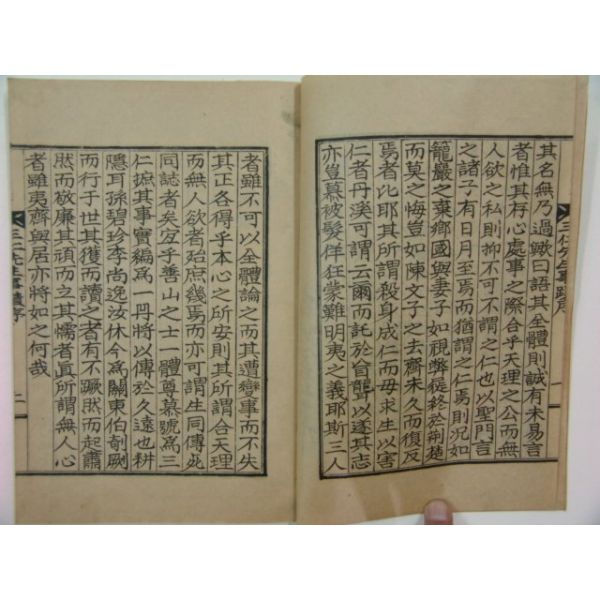 其名無乃過歟曰語其全體則誠有未易言
者惟其存心處事之際合乎天理之公而無
人欲之私則抑不可不謂之仁也以聖門言
之諸子有日月至焉而猶謂之仁焉則況如
籠巖之棄鄕國與妻子如視弊屣終於荊楚
而莫之悔豈如陳文子之去齊未久而復反
焉者比耶其所謂殺身成仁而毋求生以害
仁者丹溪可謂云爾而託於盲聾以遂其志
亦豈慕被髮佯狂蒙難明夷之義耶斯三人
三仁先生事蹟序
一
者雖不可以全體論之而其遭變事而不失
其正各得乎本心之所安則其所謂合天理
而無人欲者殆庶幾焉而亦可謂生同傳死
同誌者矣宜乎善山之士一體尊慕號爲三
仁摭其事實編爲一冊將以傳於久遠也耕
隱耳孫碧珍李尚逸汝休今爲關東伯剞劂
而行于世其獲而讀之者有不蹶然而起肅
然而敬廉其頑而立其懦者眞所謂無人心
者雖夷齊與居亦將如之何哉
三仁先生事蹟序
二